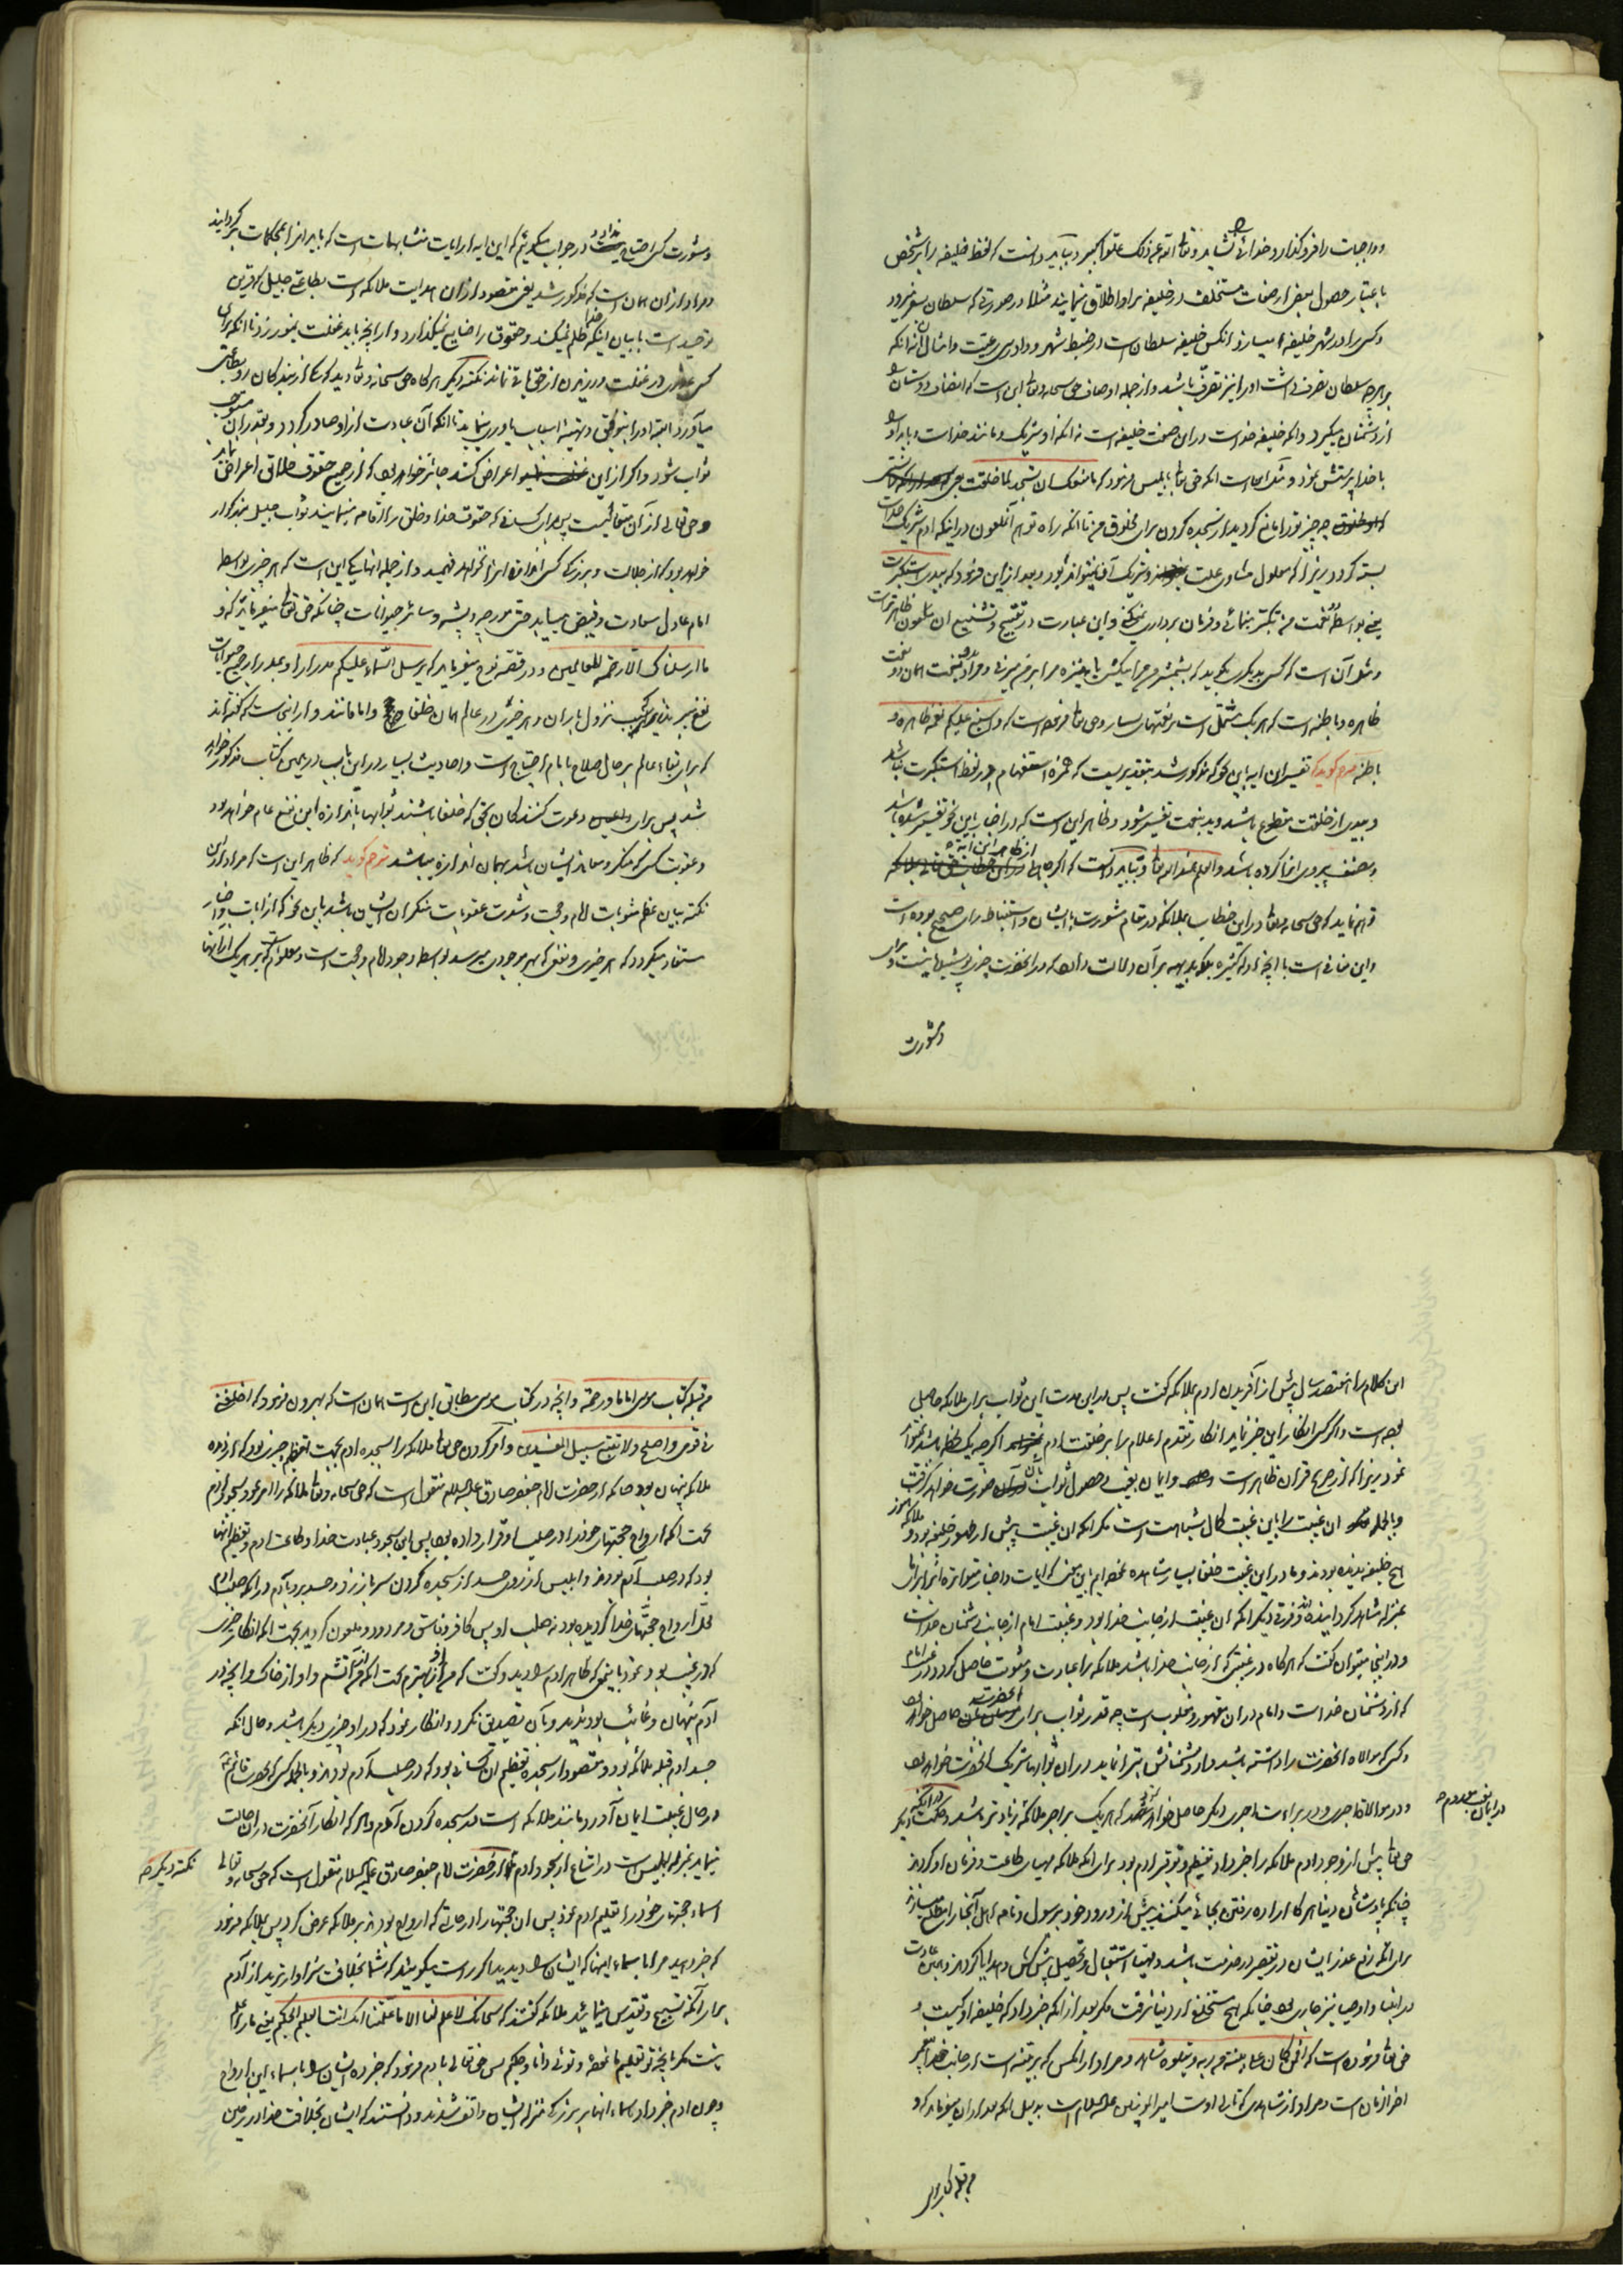 و واجبات را فرو گذارد خدائی را نشاید و تعالی الله عن ذلک علوا کبیرا و بباید دانست که لفظ خلیفه را بر شخص
باعتبار حصول بعضی از صفات مستخلف در خلیفه بر او اطلاق مینمایند مثلا در صورتی که سلطان بسفر میرود
و کسی را در شهر خلیفه میسازد آنکس خلیفه سلطان است در ضبط شهر و دادرسی رعیت و امثال آن نه آنکه
بر هر چه سلطان تصرف داشت او را نیز تصرف باشد و از جمله اوصاف حق سبحانه و تعالی این است که انصاف دوستان را
از دشمنان میگیرد و آنکه خلیفه خداست در این صفت خلیفه است نه آنکه او شریک و مانند خداست و باید او را
با خدا پرستش نمود و مؤید آنست آنکه حق تعالی بابلیس فرمود که ما منعک ان تسجد لما خلقت
چه چیز تو را مانع گردید از سجده کردن برای مخلوق من تا آنکه راه توهم آنملعون در اینکه آدم شریک خداست
بسته گردد زیرا که معلول مساوی علت و شریک آن نمیتواند بود و بعد از این فرمود که بیدی استکبرت
یعنی بواسطه دو نعمت من تکبر مینمائی و فرمان برداری نمیکنی و این عبارت در تقبیح و تشنیع آن ملعون ظاهرتر است
و مثل آن است که کسی بدیگری بگوید که بشمشیر من مرا میکشی یا بنیزه من مرا بر هم میزنی و مراد بدو نعمت همان دو نعمت
ظاهره و باطنه است که هر یک مشتمل است بر نعمتهای بسیار و حق تعالی فرموده است که و اسبغ علیکم نعمه ظاهره و
باطنه مترجم گوید که تفسیر این آیه باین نحو که مذکور شد بتقدیریست که همزه استفهام در لفظ استکبرت نباشد
و بیدی از خلقت مقطوع باشد و ید بنعمت تفسیر شود و ظاهر این است که در اخبار باین نحو تفسیر شده باشد
و مصنف پیروی آنها کرده باشد و العلم عند الله تعالی و بباید دانست که اگر جاهلی از ظاهر این آیه
توهم نماید که حق سبحانه و تعالی در این خطاب بملائکه در مقام مشورت با ایشان و استنباط رای صحیح بوده است
و این منافی است با آنچه ادله کثیره بلکه بدیهه بر آن دلالت دارد که در آنحضرت چیزی پوشیده نیست و برای
و مشورت
و مشورت کسی احتیاج ندارد در جواب میگوئیم که این آیه از آیات متشابهات است که باید آنرا بمحکمات بر گردانید
و مراد از آن همان است که مذکور شد یعنی مقصود از آن هدایت ملائکه است بطاعتی جلیل که قرین
توحید است با بیان اینکه خدا ظلم نمیکند و حقوق را ضایع نمیگذارد و از آنچه باید غفلت نمیورزد تا آنکه برای
کسی عذری در غفلت ورزیدن از حق باقی نماند نکته دیگر هر گاه حق سبحانه و تعالی دید که یکی از بندگان او طاعتی
میآورد البته او را بتوفیق و تهیئه اسباب یاوری مینماید تا آنکه آن عبادت از او صادر گردد و بقدر آن مستوجب
ثواب شود و اگر از این اعراض کند جائز خواهد بود که از جمیع حقوق خلائق اعراض نماید
و حق تعالی از آن متعالیست پس برای کسانی که حقوق خدا و خلق را اقامه مینمایند ثواب جلیل بزرگوار
خواهد بود که از جلالت و بزرگی کسی اندازه آنرا نخواهد فهمید و از جمله آنها یکی این است که هر خیری بواسطه
امام عادل سعادت و فیض مییابد حتی مورچه و پشه و سائر حیوانات چنانکه حق تعالی میفرماید که و
ما ارسلناک الا رحمة للعالمین و در قصه نوح میفرماید که یرسل السماء علیکم مدرارا و بمدرار جمیع حیوانات
نفع میبرند بسبب نزول باران و هر خیری در عالم همان خلفا و امامانند و از اینجاست که گفته‌اند
که برای بقاء عالم بر حال صلاح بامام احتیاج است و احادیث بسیار در این باب در همین کتاب مذکور خواهد
شد پس برای داعی و دعوت کنندگان بحق که خلفا باشند ثوابها باندازه این نفع عام خواهد بود
و عقوبت کسی که منکر و معاند ایشان باشد بهمان اندازه میباشد مترجم گوید که ظاهر این است که مراد از این
نکته بیان عظم مثوبات امام و حجت و شدت عقوبات منکران ایشان باشد باین نحو که از آیات و اخبار
مستفاد میگردد که هر خیری و نفعی که بهر موجودی میرسد بواسطه وجود امام و حجت است و معلوم است که بر هر یک از آنها
این کلام را هفتصد سال پیش از آفریدن آدم بملائکه گفت پس در این مدت این ثواب برای ملائکه حاصل
بوده است و اگر کسی انکار این خبر نماید انکار تقدم اعلام را بر خلقت آدم اگر چه یک لحظه باشد نمیتواند
نمود زیرا که از صریح قرآن ظاهر است و ایمان بغیب و حصول ثواب بآن صورت خواهد گرفت
و بالجمله آن غیبت را باین غیبت کمال شباهت است مگر آنکه آن غیبت پیش از ظهور خلیفه بود و ملائکه هنوز
هیچ خلیفه ندیده بودند و ما در این غیبت خلفا بسیار مشاهده نموده‌ایم باین معنی که آیات و اخبار متواتره آنها را برای ما
بمنزله مشاهد گردانیده‌اند و فرق دیگر آنکه آن غیبت از جانب خدا بود و غیبت امام از جانب دشمنان خداست
و در اینجا میتوان گفت که هر گاه در غیبتی که از جانب خدا باشد ملائکه را عبادت و مثوبت حاصل گردد در غیبت امام
که از دشمنان خداست و امام در آن مقهور و مغلوب است چه قدر ثواب برای آنحضرت حاصل خواهد بود
و کسی که موالات آنحضرت را داشته باشد و از دشمنانش تبرا نماید در آن ثوابها شریک آنحضرت خواهد بود
و در موالات اجری و در براءت اجری دیگر حاصل خواهد بود که هر یک بر اجر ملائکه زیادتر باشد و حکمت دیگر در آنکه
حق تعالی پیش از وجود آدم ملائکه را خبر داد تعظیم و توقیر آدم بود برای آنکه ملائکه مهیای طاعت و فرمان او گردند
چنانکه پادشاهان دنیا هر گاه اراده رفتن بجائی میکنند پیش از ورود خود برسول و نامه اهل آنجا را مطلع میسازند
برای آنکه رفع عذر ایشان در تقصیر در خدمت باشد و تهیه استقبال و تحصیل پیش کش و هدایا کردند و همین عادت
در انبیا و اوصیا نیز جاری بود چنانکه هیچ مستخلف از دنیا نرفت مگر بعد از آنکه خبر داد که خلیفه او کیست و
حق تعالی فرموده است که افمن کان علی بینة من ربه و یتلوه شاهد و مراد از آنکس که بر بینه است از جانب خدا پیغمبر
آخر الزمان است و مراد از شاهدی که تالی اوست امیر المؤمنین علیه السلام است بدلیل آنکه بعد از آن میفرماید که و
من قبله کتاب موسی
من قبله کتاب موسی اماما و رحمة و آنچه در کتاب موسی مطابق این است همان است که بهرون فرمود که اخلفنی
فی قومی و اصلح و لا تتبع سبیل المفسدین و امر کردن حق تعالی ملائکه را بسجده آدم بجهت تعظیم چیزی بود که از دیده
ملائکه پنهان بود چنانکه از حضرت امام جعفر صادق علیه السلام منقول است که حق سبحانه و تعالی ملائکه را امر نمود بسجود آدم
بجهت آنکه ارواح حجتهای خود را در صلب او قرار داده بود پس این سجود عبادت خدا و طاعت آدم و تعظیم آنها
بود که در صلب آدم بودند و ابلیس از روی حسد از سجده کردن سر باز زد و حسد برد بآدم در آنکه صلب آدم
محل ارواح حجتهای خدا گردیده بود نه صلب او پس کافر و فاسق و مردود و ملعون گردید بجهت آنکه انکار چیزی
که در غیب بود نمود باینمعنی که ظاهر آدم را دید و گفت که من از او بهترم بجهت آنکه من از آتشم و او از خاک و آنچه در
آدم پنهان و غائب بود ندید و بآن تصدیق نکرد و انکار نمود که در او چیزی دیگر باشد و حال آنکه
جسد آدم قبله ملائکه بود و مقصود از سجده تعظیم آن کسانی بود که در صلب آدم بودند و بالجمله کسی که بحضرت قائم
در حال غیبت ایمان آورد مانند ملائکه است در سجده کردن آدم و هر که انکار آنحضرت در آن حالت
نماید بمنزله ابلیس است در امتناع از سجود آدم از حضرت امام جعفر صادق علیه السلام منقول است که حق سبحانه و تعالی
نکته دیگر
اسماء حجتهای خود را تعلیم آدم نمود پس آن حجتها را در حالتی که ارواح بودند بر ملائکه عرض کرد پس بملائکه فرمود
که خبر دهید مرا باسماء اینها که ایشان را دیدید اگر راست میگوئید که شما بخلافت سزاوار ترید از آدم
برای آنکه تسبیح و تقدیس مینمائید ملائکه گفتند که سبحانک لا علم لنا الا ما علمتنا انک انت العلیم الحکیم یعنی ما را علم
نیست مگر بآنچه تو تعلیم ما نموده و توئی دانا و حکیم پس حق تعالی بآدم فرمود که خبر ده ایشان را باسماء این ارواح
و چون آدم خبر داد باسماء آنها بر بزرگی منزله ایشان واقف شدند و دانستند که ایشان بخلافت خدا در زمین